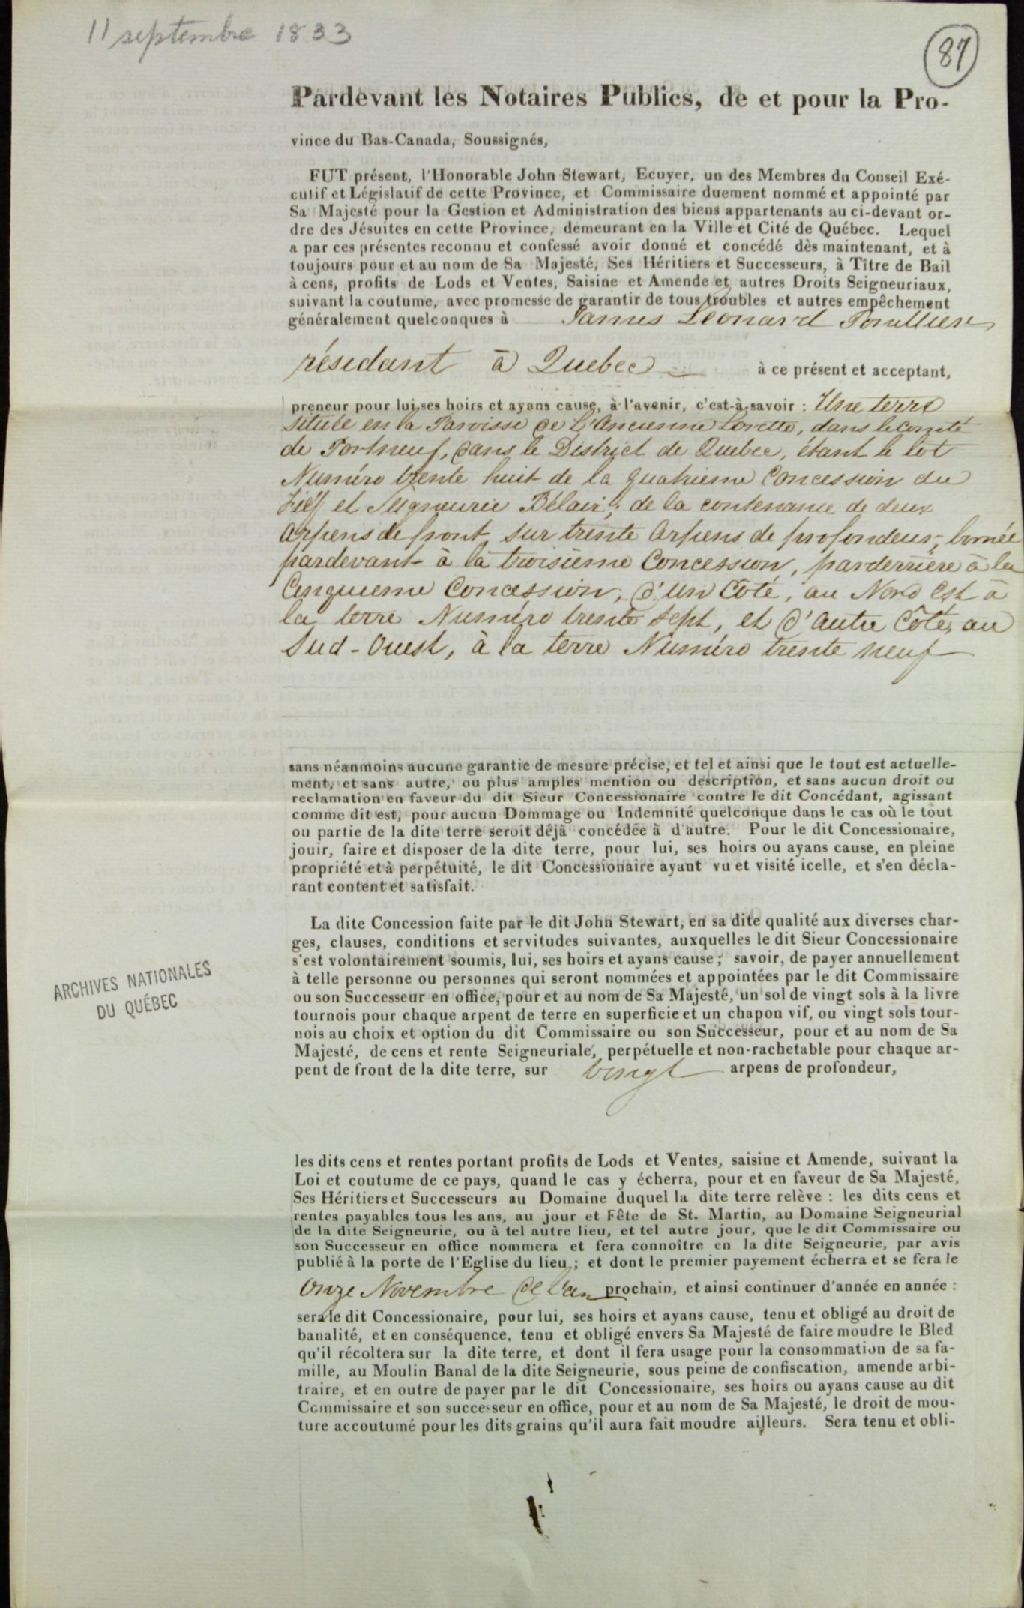 11 septembre 1833
87
Pardevant les Notaires Publics, de et pour la Pro-
vince du Bas-Canada, Soussignés,
FUT présent, l'Honorable John Stewart, Ecuyer, un des Membres du Conseil Exé-
cutif et Législatif de cette Province, et Commissaire duement nommé et appointé par
Sa Majesté pour la Gestion et Administration des biens appartenants au ci-devant or-
dre des Jésuites en cette Province, demeurant en la Ville et Cité de Québec. Lequel
a par ces présentes reconnu et confessé avoir donné et concédé dès maintenant, et à
toujours pour et au nom de Sa Majesté, Ses Héritiers et Successeurs, à Tître de Bail
à cens, profits de Lods et Ventes, Saisine et Amende et autres Droits Seigneuriaux,
suivant la coutume, avec promesse de garantir de tous troubles et autres empêchement
généralement quelconques à James Leonard
résidant à Quebec à ce présent et acceptant,
preneur pour lui ses hoirs et ayans cause, à l'avenir, c'est-à-savoir : Une terre
située en la Paroisse de L'Ancienne Lorette, dans le Comté
de Portneuf, dans le District de Quebec, étant le lot
Numéro trente huit de la quatrieme Concession du
Fieff et Seigneurie Bélair, de la contenance de deux
Arpens de front, sur trente Arpens de profondeur, bornée
pardevant à la troisieme Concession, parderrière à la
Cinquieme Concession, d'un Coté, au Nord Est à
la terre Numéro trente sept, et d'autre Côté, au
Sud-Ouest, à la terre Numéro trente neuf
sans néanmoins aucune garantie de mesure précise, et tel et ainsi que le tout est actuelle-
ment, et sans autre, ou plus amples mention ou description, et sans aucun droit ou
reclamation en faveur du dit Sieur Concessionaire contre le dit Concédant, agissant
comme dit est, pour aucun Dommage ou Indemnité quelconque dans le cas où le tout
ou partie de la dite terre seroit déjà concédée à d'autre. Pour le dit Concessionaire,
jouir, faire et disposer de la dite terre, pour lui, ses hoirs ou ayans cause, en pleine
propriété et à perpétuité, le dit Concessionaire ayant vu et visité icelle, et s'en décla-
rant content et satisfait.
La dite Concession faite par le dit John Stewart, en sa dite qualité aux diverses char-
ges, clauses, conditions et servitudes suivantes, auxquelles le dit Sieur Concessionaire
s'est volontairement soumis, lui, ses hoirs et ayans cause ; savoir, de payer annuellement
à telle personne ou personnes qui seront nommées et appointées par le dit Commissaire
ou son Successeur en office, pour et au nom de Sa Majesté, un sol de vingt sols à la livre
tournois pour chaque arpent de terre en superficie et un chapon vif, ou vingt sols tour-
nois au choix et option du dit Commissaire ou son Successeur, pour et au nom de Sa
Majesté, de cens et rente Seigneuriale, perpétuelle et non-rachetable pour chaque ar-
pent de front de la dite terre, sur vingt arpens de profondeur,
ARCHIVES NATIONALES
DU QUÉBEC
les dits cens et rentes portant profits de Lods et Ventes, saisine et Amende, suivant la
Loi et coutume de ce pays, quand le cas y écherra, pour et en faveur de Sa Majesté,
Ses Héritiers et Successeurs au Domaine duquel la dite terre relève : les dits cens et
rentes payables tous les ans, au jour et Fête de St. Martin, au Domaine Seigneurial
de la dite Seigneurie, ou à tel autre lieu, et tel autre jour, que le dit Commissaire ou
son Successeur en office nommera et fera connoître en la dite Seigneurie, par avis
publié à la porte de l'Eglise du lieu ; et dont le premier payement écherra et se fera le
Onze Novembre de l'an prochain, et ainsi continuer d'année en année :
sera le dit Concessionaire, pour lui, ses hoirs et ayans cause, tenu et obligé au droit de
banalité, et en conséquence, tenu et obligé envers Sa Majesté de faire moudre le Bled
qu'il récoltera sur la dite terre, et dont il fera usage pour la consommation de sa fa-
mille, au Moulin Banal de la dite Seigneurie, sous peine de confiscation, amende arbi-
traire, et en outre de payer par le dit Concessionaire, ses hoirs ou ayans cause au dit
Commissaire et son successeur en office, pour et au nom de Sa Majesté, le droit de mou-
ture accoutumé pour les dits grains qu'il aura fait moudre ailleurs. Sera tenu et obli-